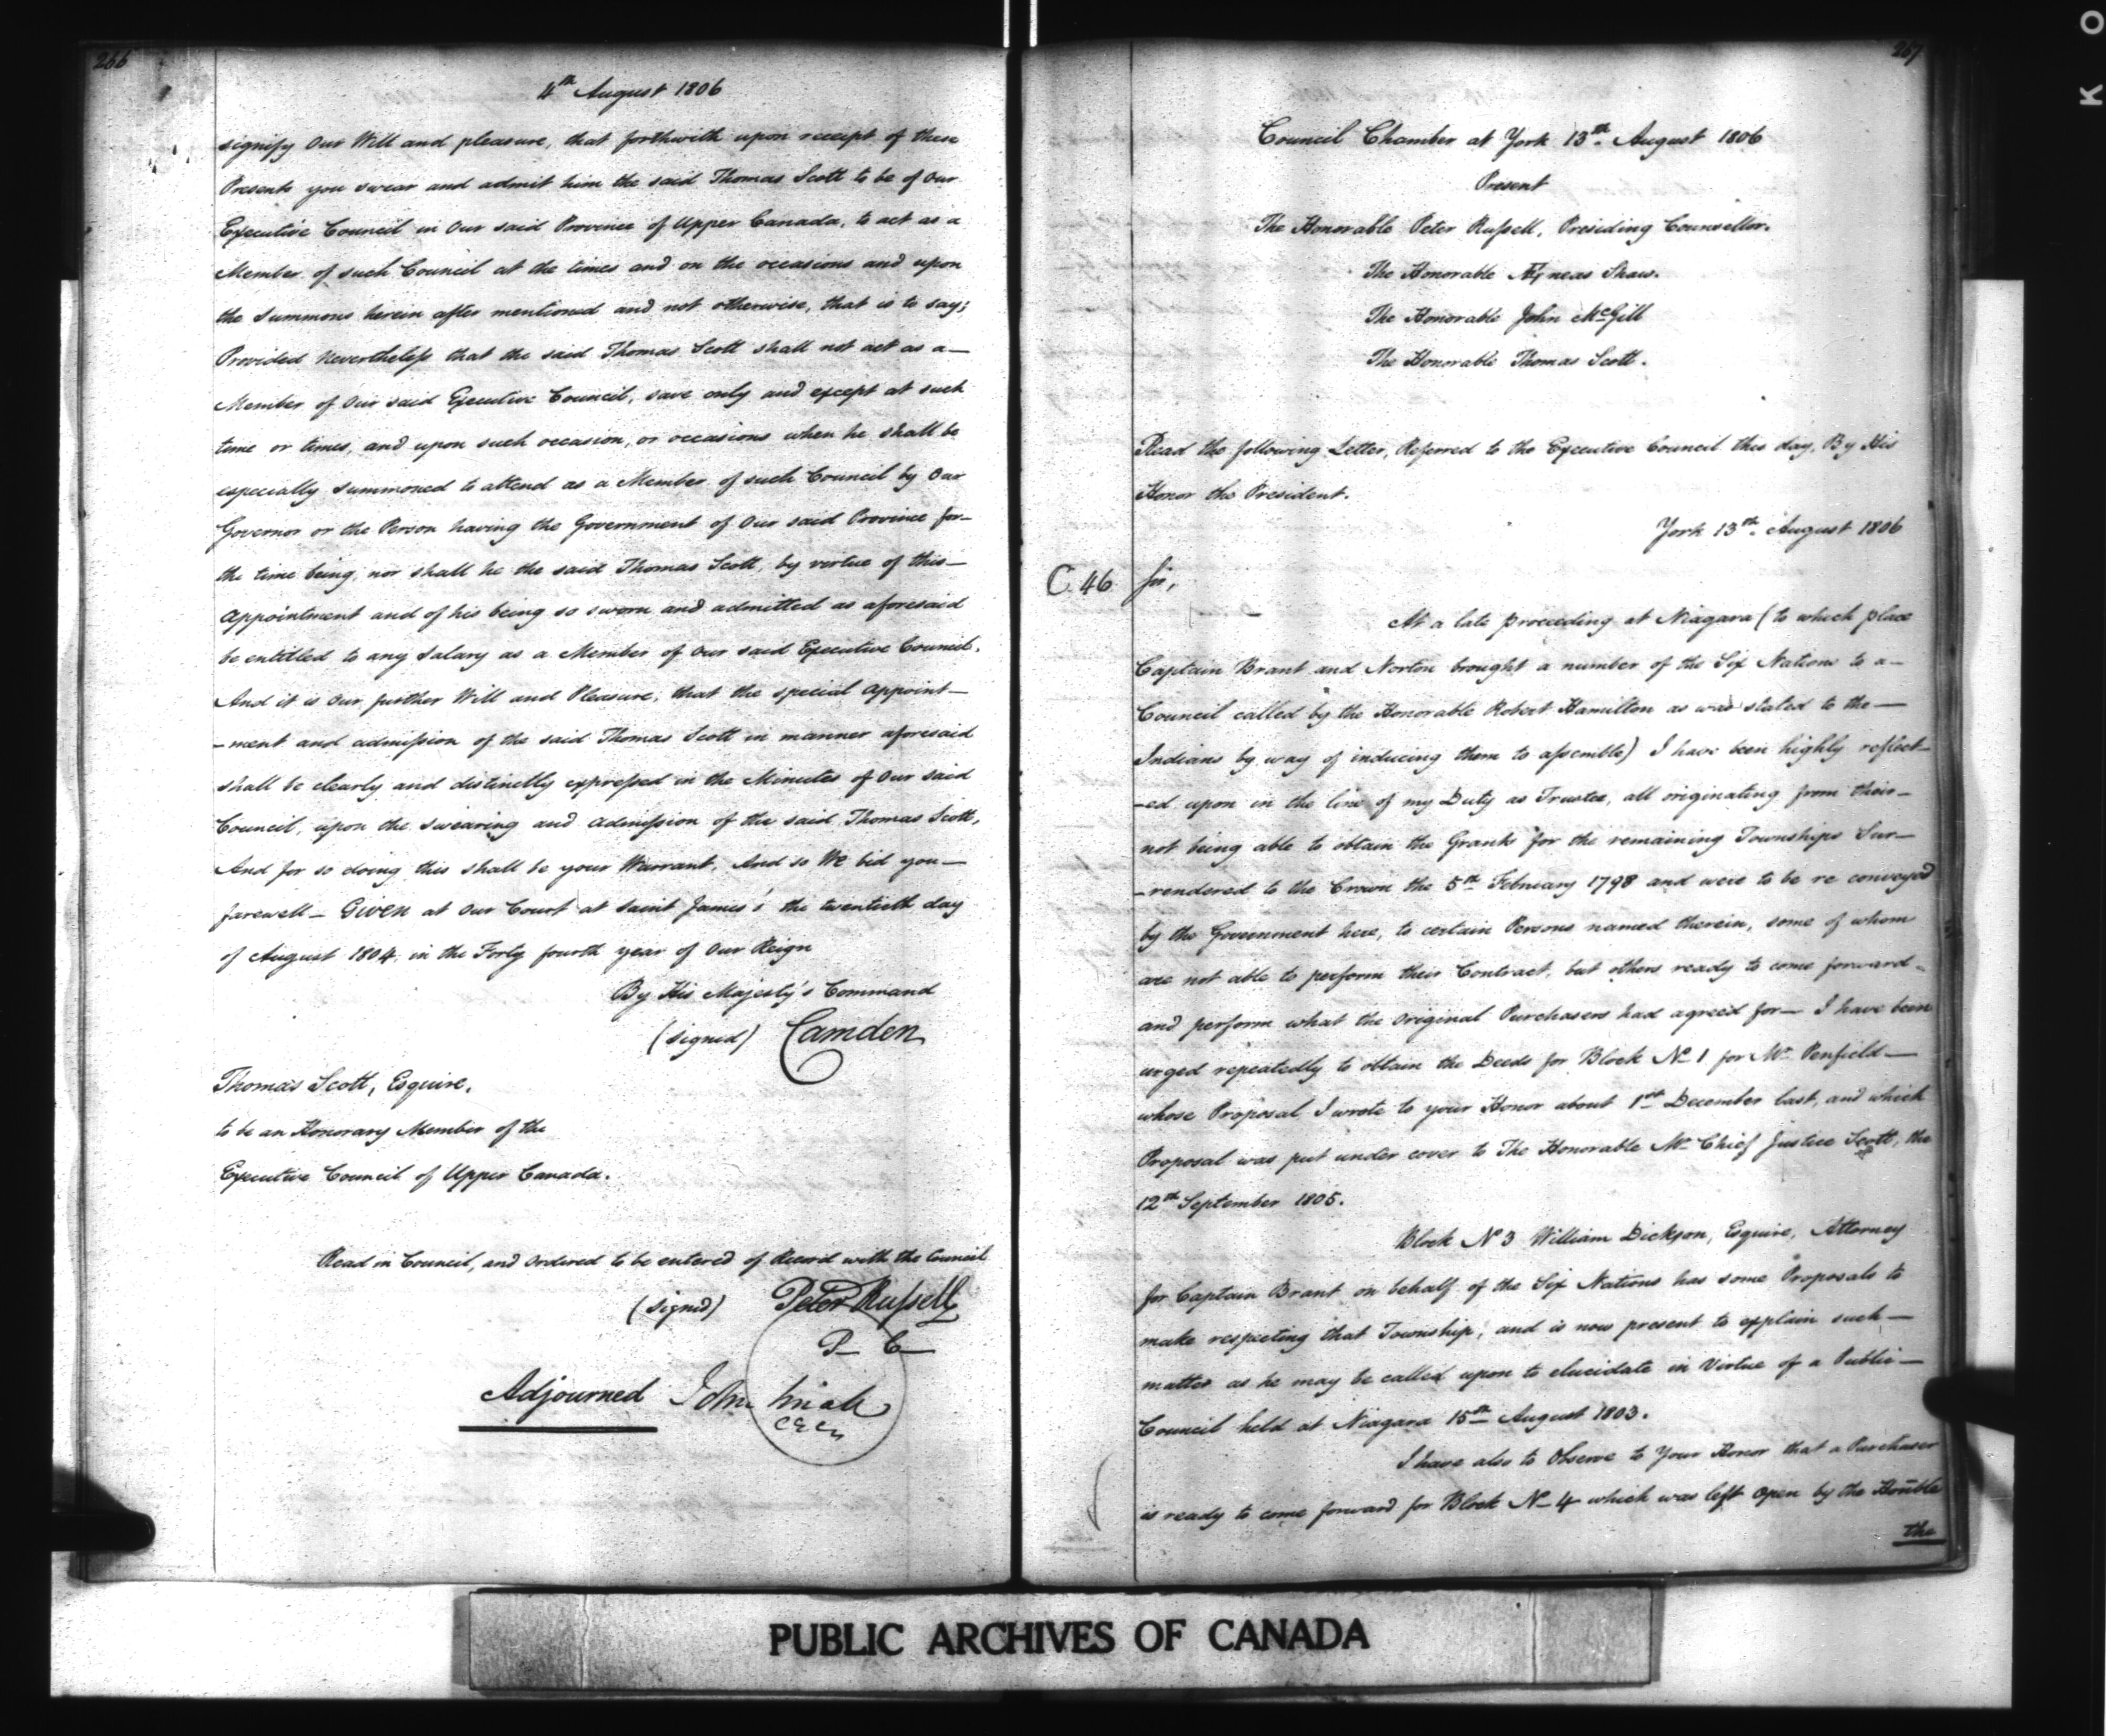 266
4th August 1806
signify Our Will and pleasure, that forthwith upon receipt of these
Presents you swear and admit him the said Thomas Scott to be of Our
Executive Council in Our said Province of Upper Canada, to act as a
Member of such Council at the times and on the occasions and upon
the Summons herein after mentioned and not otherwise, that is to say;
Provided Nevertheless that the said Thomas Scott shall not act as a—
Member of Our said Executive Council, save only and except at such
time or times, and upon such occasion, or occasions when he shall be
especially Summoned to attend as a Member of such Council by Our
Governor or the Person having the Government of Our said Province for—
the time being, nor shall he the said Thomas Scott, by virtue of this—
Appointment and of his being so sworn and admitted as aforesaid
be entitled to any Salary as a Member of Our said Executive Council.
And it is Our further Will and Pleasure, that the special Appoint—
—ment and admission of the said Thomas Scott in manner aforesaid
shall be clearly and distinctly expressed in the Minutes of Our said
Council, upon the Swearing and Admission of the said Thomas Scott,
And for so doing this shall be your Warrant, And so We bid you—
farewell— Given at Our Court at Saint James's the twentieth day
of August 1804. in the Forty fourth year of Our Reign
By His Majesty's Command
(signed) Camden
Thomas Scott, Esquire.
to be an Honorary Member of the
Executive Council of Upper Canada.
Read in Council, and Ordered to be entered of Record with the Council
(signed) Peter Russell
P— C—
Adjourned John Small
C E C
267
Council Chamber at York 13th August 1806
Present
The Honorable Peter Russell, Presiding Counsellor.
The Honorable Æneas Shaw.
The Honorable John McGill
The Honorable Thomas Scott.
Read the following Letter, Referred to the Executive Council this day, By His
Honor the President.
York 13th August 1806
C. 46 Sir,
At a late proceeding at Niagara (to which place
Captain Brant and Norton brought a number of the Six Nations to a—
Council called by the Honorable Robert Hamilton as was stated to the—
Indians by way of inducing them to assemble) I have been highly reflect—
—ed upon in the line of my Duty as Trustee, all originating from their—
not being able to obtain the Grants for the remaining Townships Sur—
—rendered to the Crown the 5th February 1798 and were to be re conveyed
by the Government here, to certain Persons named therein, some of whom
are not able to perform their Contract, but others ready to come forward—
and perform what the Original Purchasers had agreed for— I have been
urged repeatedly to obtain the Deeds for Block No 1 for Mr Penfield—
whose Proposal I wrote to your Honor about 1st December last, and which
Proposal was put under cover to The Honorable Mr Chief Justice Scott, the
12th September 1805.
Block No 3 William Dickson, Esquire, Attorney
for Captain Brant on behalf of the Six Nations has some Proposals to
make respecting that Township, and is now present to explain such—
matter as he may be called upon to elucidate in Virtue of a Public—
Council held at Niagara 15th August 1803.
I have also to Observe to Your Honor that a Purchaser
is ready to come forward for Block No 4 which was left open by the Honble
the
PUBLIC ARCHIVES OF CANADA